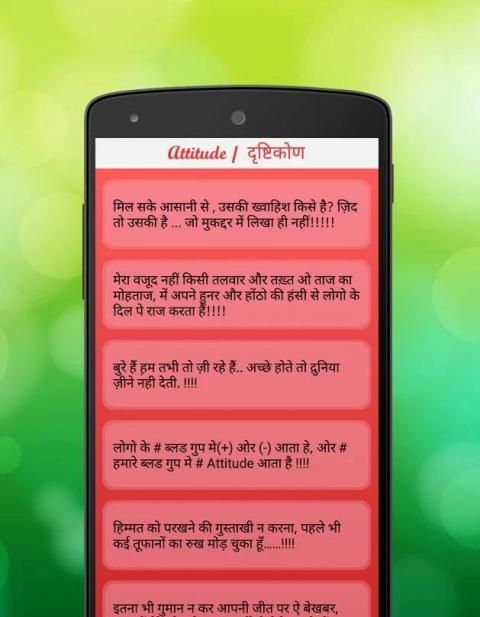 Attitude / दृष्टिकोण
मिल सके आसानी से , उसकी ख्वाहिश किसे है? ज़िद
तो उसकी है ... जो मुकद्दर में लिखा ही नहीं!!!!!
मेरा वजूद नहीं किसी तलवार और तख़्त ओ ताज का
मोहताज, में अपने हुनर और होंठो की हंसी से लोगो के
दिल पे राज करता हूँ!!!!
बुरे हैं ह़म तभी तो ज़ी रहे हैं.. अच्छे होते तो द़ुनिया
ज़ीने नही देती. !!!!
लोगो के # ब्लड गुप मे(+) ओर (-) आता हे, ओर #
हमारे ब्लड गुप मे # Attitude आता है !!!!
हिम्मत को परखने की गुस्ताखी न करना, पहले भी
कई तूफानों का रुख मोड़ चुका हूँ......!!!!
इतना भी गुमान न कर आपनी जीत पर ऐ बेखबर,